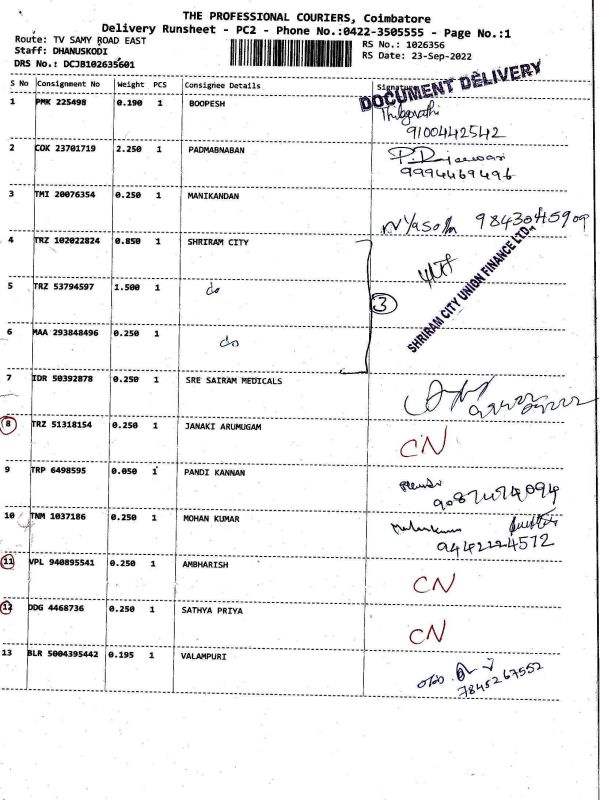 THE PROFESSIONAL COURIERS, Coimbatore
Delivery Runsheet - PC2 - Phone No.:0422-3505555 - Page No.:1
Route: TV SAMY ROAD EAST RS No.: 1026356
Staff: DHANUSKODI RS Date: 23-Sep-2022
DRS No.: DCJB102635601
S No Consignment No Weight PCS Consignee Details Signature
DOCUMENT DELIVERY
1 PMK 225498 0.190 1 BOOPESH
9100442542
2 COK 23701719 2.250 1 PADMABNABAN
9994469496
3 TMI 20076354 0.250 1 MANIKANDAN
9843045909
4 TRZ 102022824 0.850 1 SHRIRAM CITY
5 TRZ 53794597 1.500 1 do
3
SHRIRAM CITY UNION FINANCE LTD.,
6 MAA 293848496 0.250 1 do
7 IDR 50392878 0.250 1 SRE SAIRAM MEDICALS
8 TRZ 51318154 0.250 1 JANAKI ARUMUGAM CN
9 TRP 6498595 0.050 1 PANDI KANNAN
9087474094
10 TNM 1037186 0.250 1 MOHAN KUMAR
9442224572
11 VPL 940895541 0.250 1 AMBHARISH CN
12 DDG 4468736 0.250 1 SATHYA PRIYA CN
13 BLR 5004395442 0.195 1 VALAMPURI
7845267552